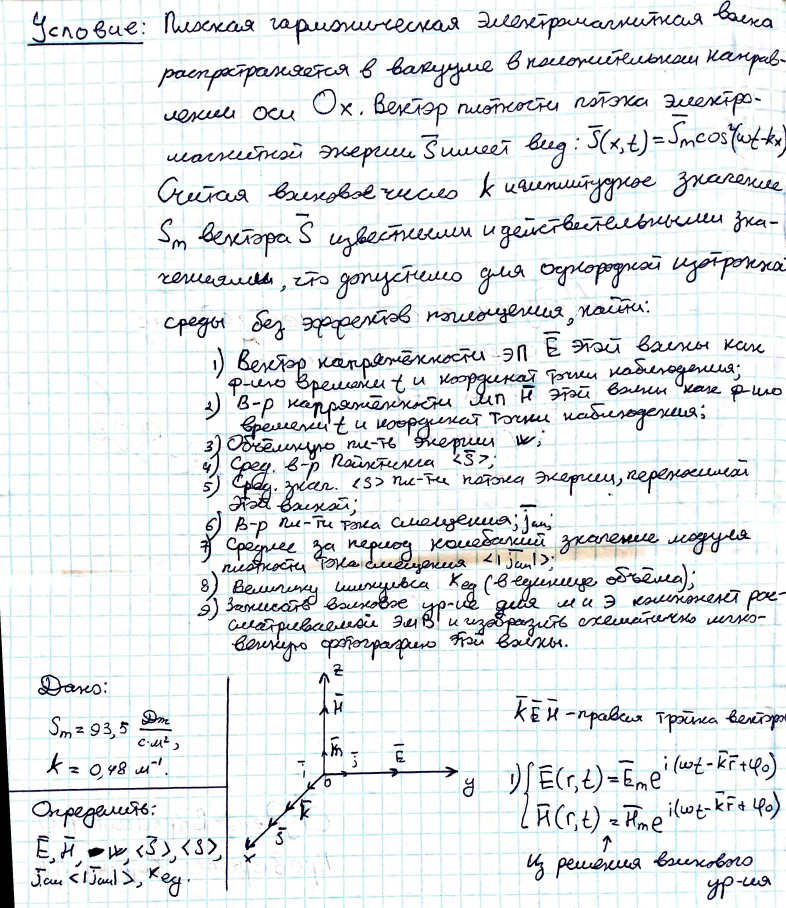 Условие: Плоская гармоническая электромагнитная волна
распространяется в вакууме в положительном направ-
лении оси Ox. Вектор плотности потока электро-
магнитной энергии S̄ имеет вид: S̄(x,t) = S̄m cos²(ωt-kx)
Считая волновое число k и амплитудное значение
Sm вектора S̄ известными и действительными зна-
чениями, что допустимо для однородной изотропной
среды без эффектов поглощения, найти:
1) Вектор напряжённости ЭП Ē этой волны как
ф-ию времени t и координат точки наблюдения;
2) В-р напряжённости МП H̄ этой волны как ф-ию
времени t и координат точки наблюдения;
3) Объёмную пл-ть энергии w;
4) Сред. в-р Пойнтинга <S̄>;
5) Сред. знач. <S> пл-ти потока энергии, переносимой
этой волной;
6) В-р пл-ти тока смещения j̄см;
7) Среднее за период колебаний значение модуля
плотности тока смещения <|j̄см|>;
8) Величину импульса Kед (в единице объёма);
9) Записать волновое ур-ие для м и э компонент рас-
сматриваемой ЭМВ и изобразить схематично мгно-
венную фотографию этой волны.
Дано:
Sm = 93,5 Дж/с·м²,
k = 0,48 м⁻¹.
Определить:
Ē, H̄, w, <S̄>, <S>,
j̄см <|j̄см|>, Kед.
z
H̄
k̄
ī
0
j̄
Ē
y
k̄
S̄
x
k̄ Ē H̄ - правая тройка векторов
1) { Ē(r,t) = Ēm e^i(ωt-k̄r̄+φ0)
H̄(r,t) = H̄m e^i(ωt-k̄r̄+φ0)
↑
из решения волнового
ур-ия